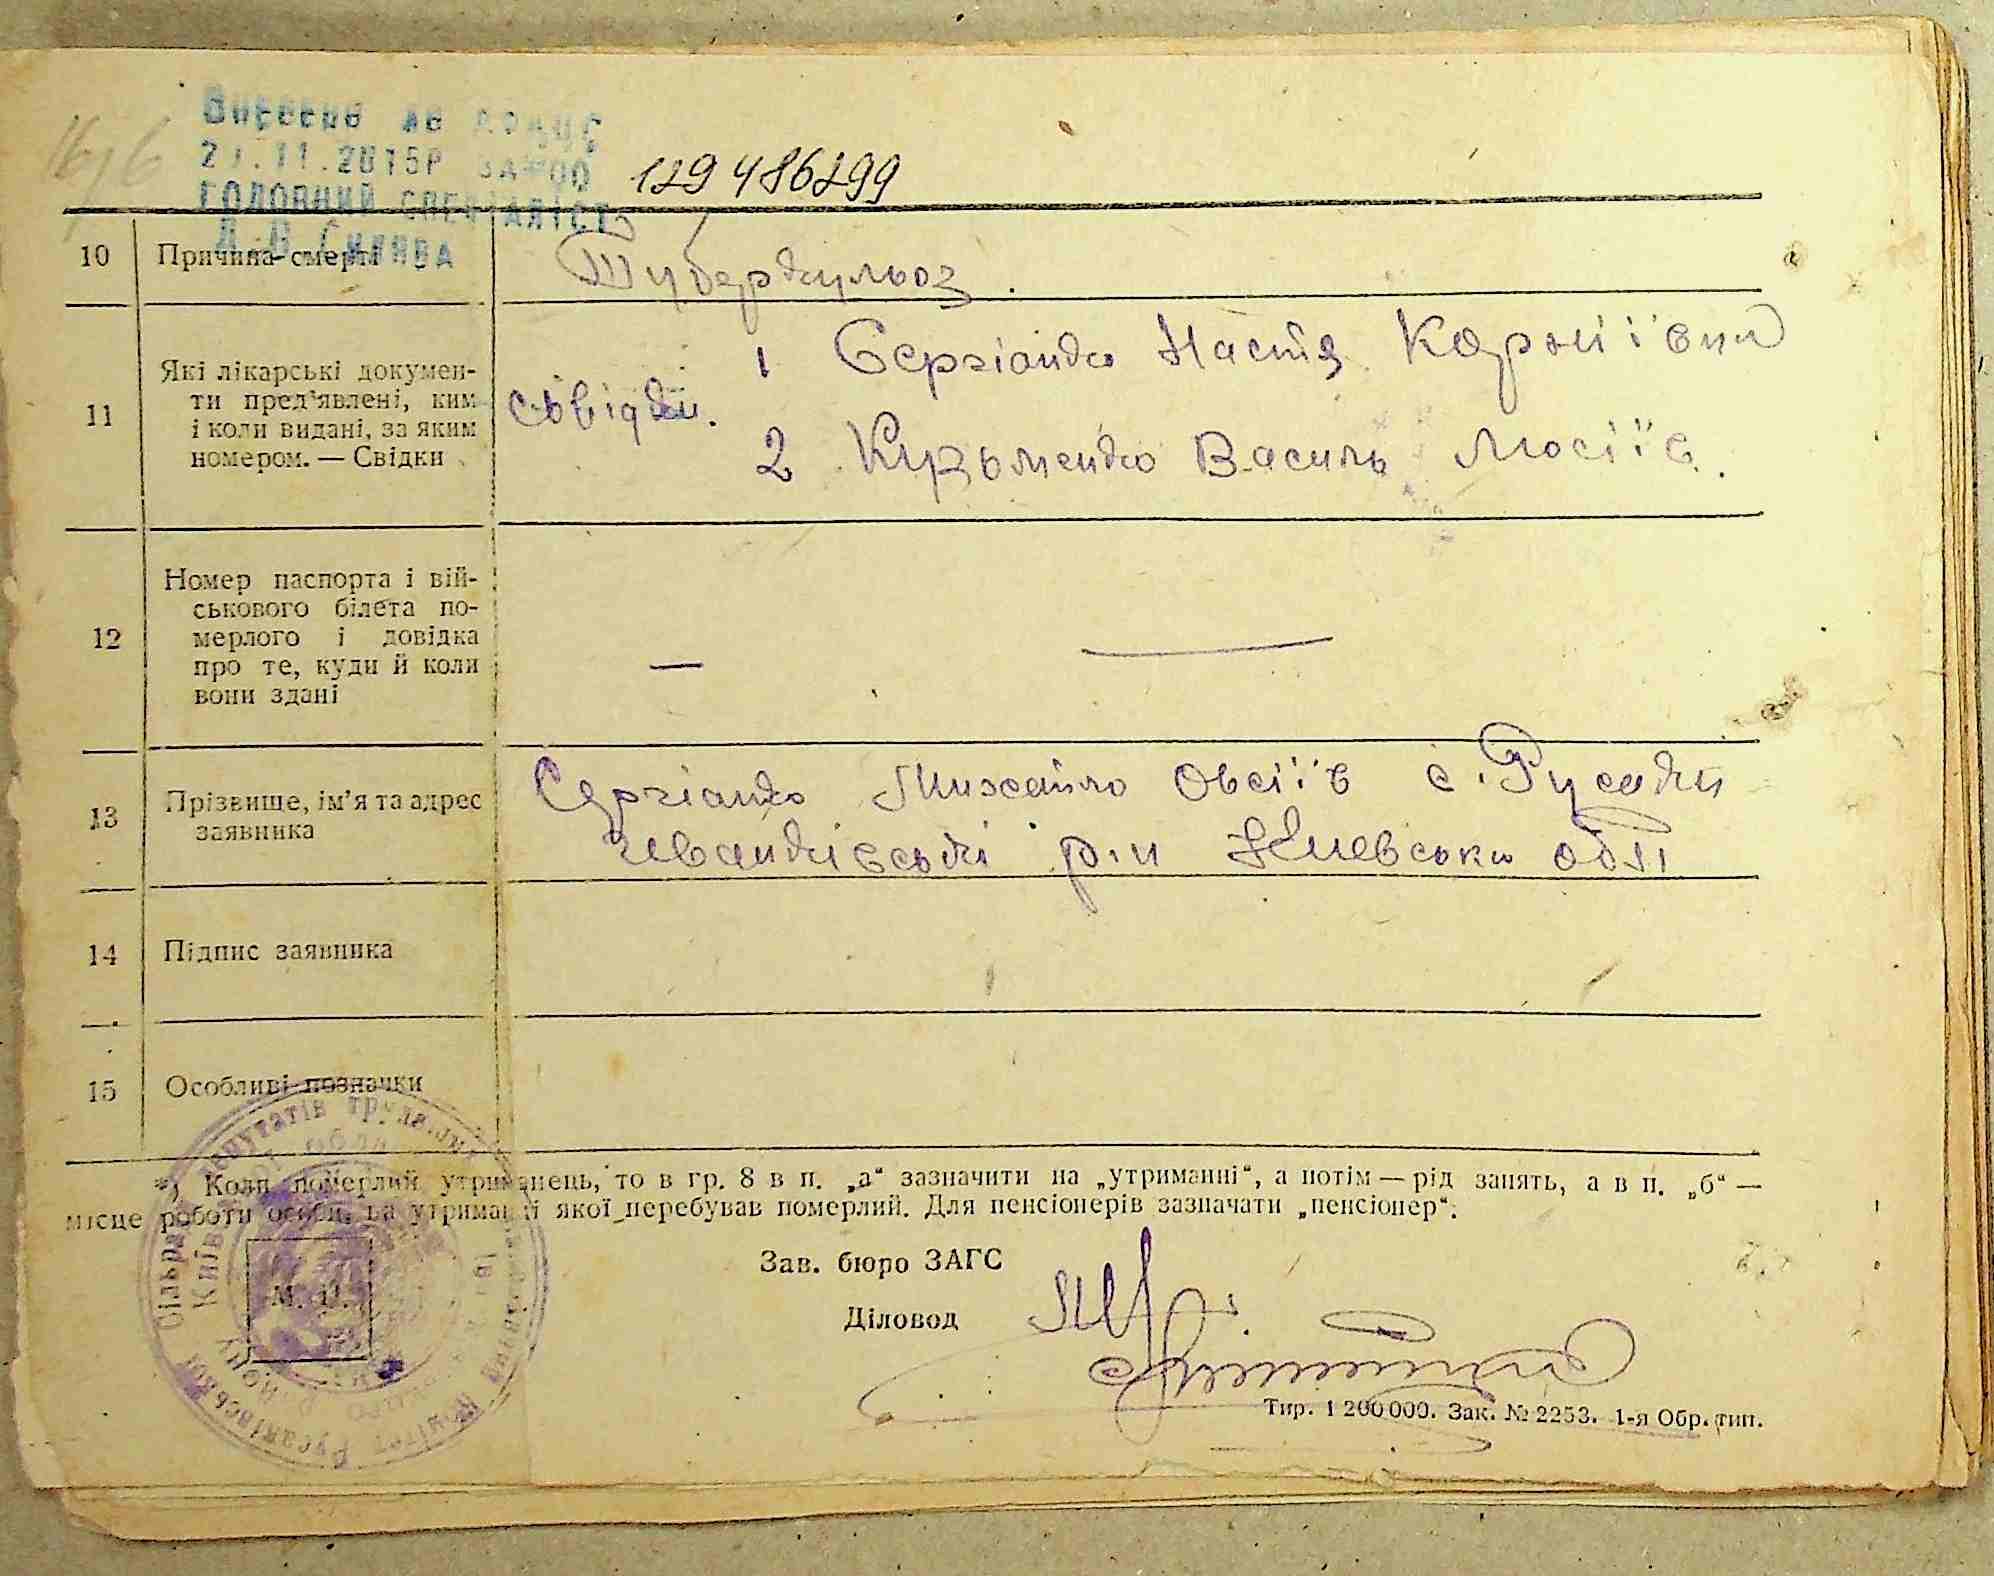 16/6
Внесено до ДРАЦС
2015р за №00 129486299
ГОЛОВНИЙ СПЕЦІАЛІСТ
10 Причина смерті Туберкульоз.
11 Які лікарські докумен-
ти пред'явлені, ким
і коли видані, за яким
номером. — Свідки
свідки. 1 Сергієнко Настя Корніївна
2 Кузьменко Василь Мосіїв.
12 Номер паспорта і вій-
ськового білета по-
мерлого і довідка
про те, куди й коли
вони здані
— —
13 Прізвище, ім'я та адрес
заявника
Сергієнко Михайло Овсіїв с. Русаки
Іванківські р-н Киевська обл
14 Підпис заявника
15 Особливі позначки
*) Коли померлий утриманець, то в гр. 8 в п. „а“ зазначити на „утриманні“, а потім — рід занять, а в п. „б“ —
місце роботи особи, на утриманні якої перебував померлий. Для пенсіонерів зазначати „пенсіонер“.
Зав. бюро ЗАГС
М. П.
Діловод
Тир. 1 200 000. Зак. № 2253. 1-я Обр. тип.
сільради депутатів трудящих